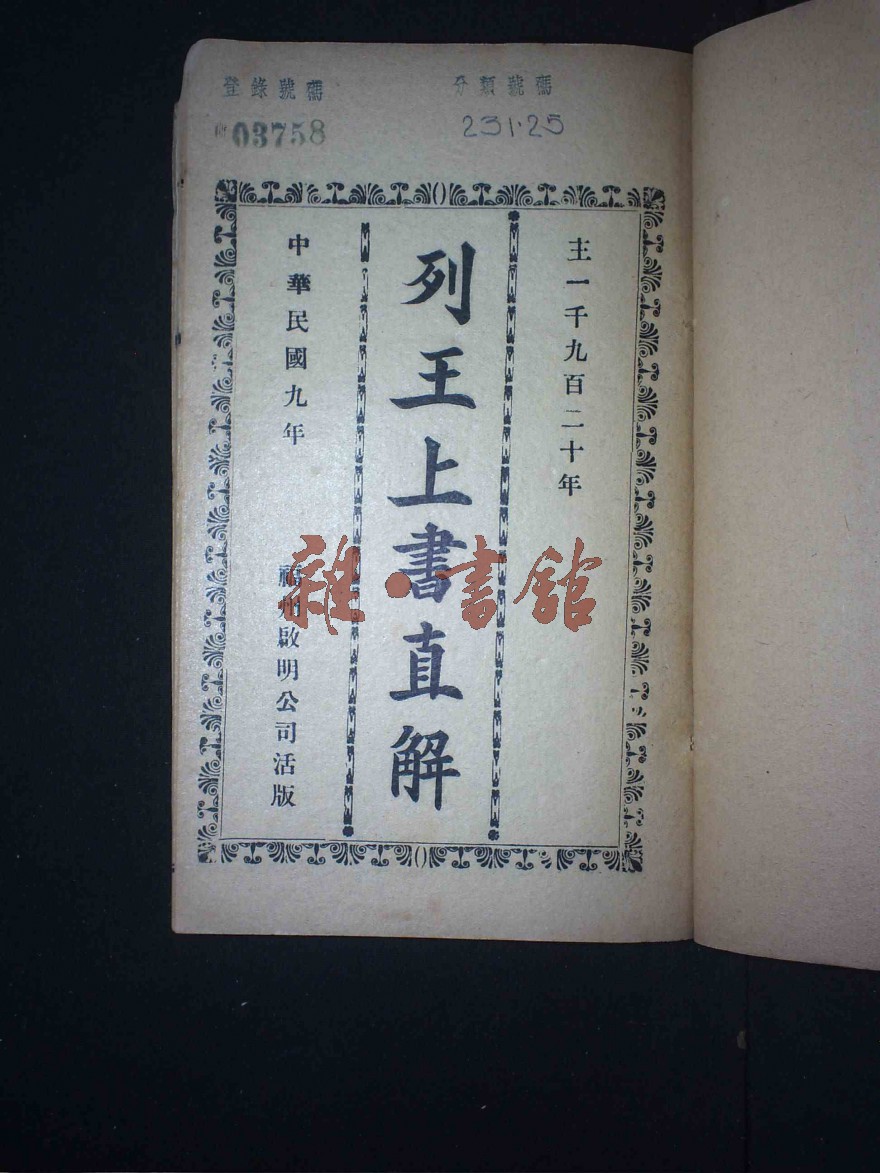 登錄號碼
03758
分類號碼
231.25
主一千九百二十年
列王上書直解
中華民國九年
福州啟明公司活版
雜·書館